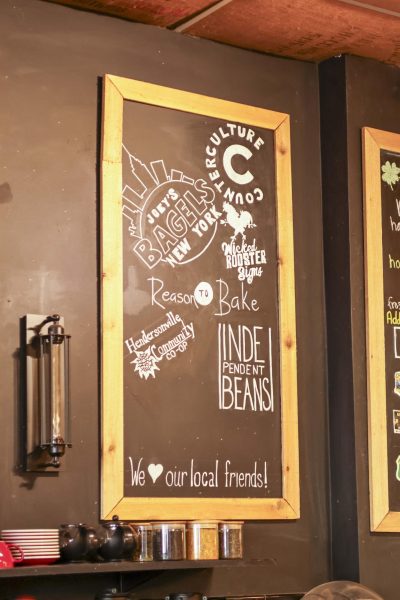 COUNTERCULTURE
C
JOEY'S
BAGELS
NEW YORK
Wicked
ROOSTER
Signs
Reason TO Bake
Hendersonville
Community
CO-OP
INDE
PENDENT
BEANS
We ♥ our local friends!